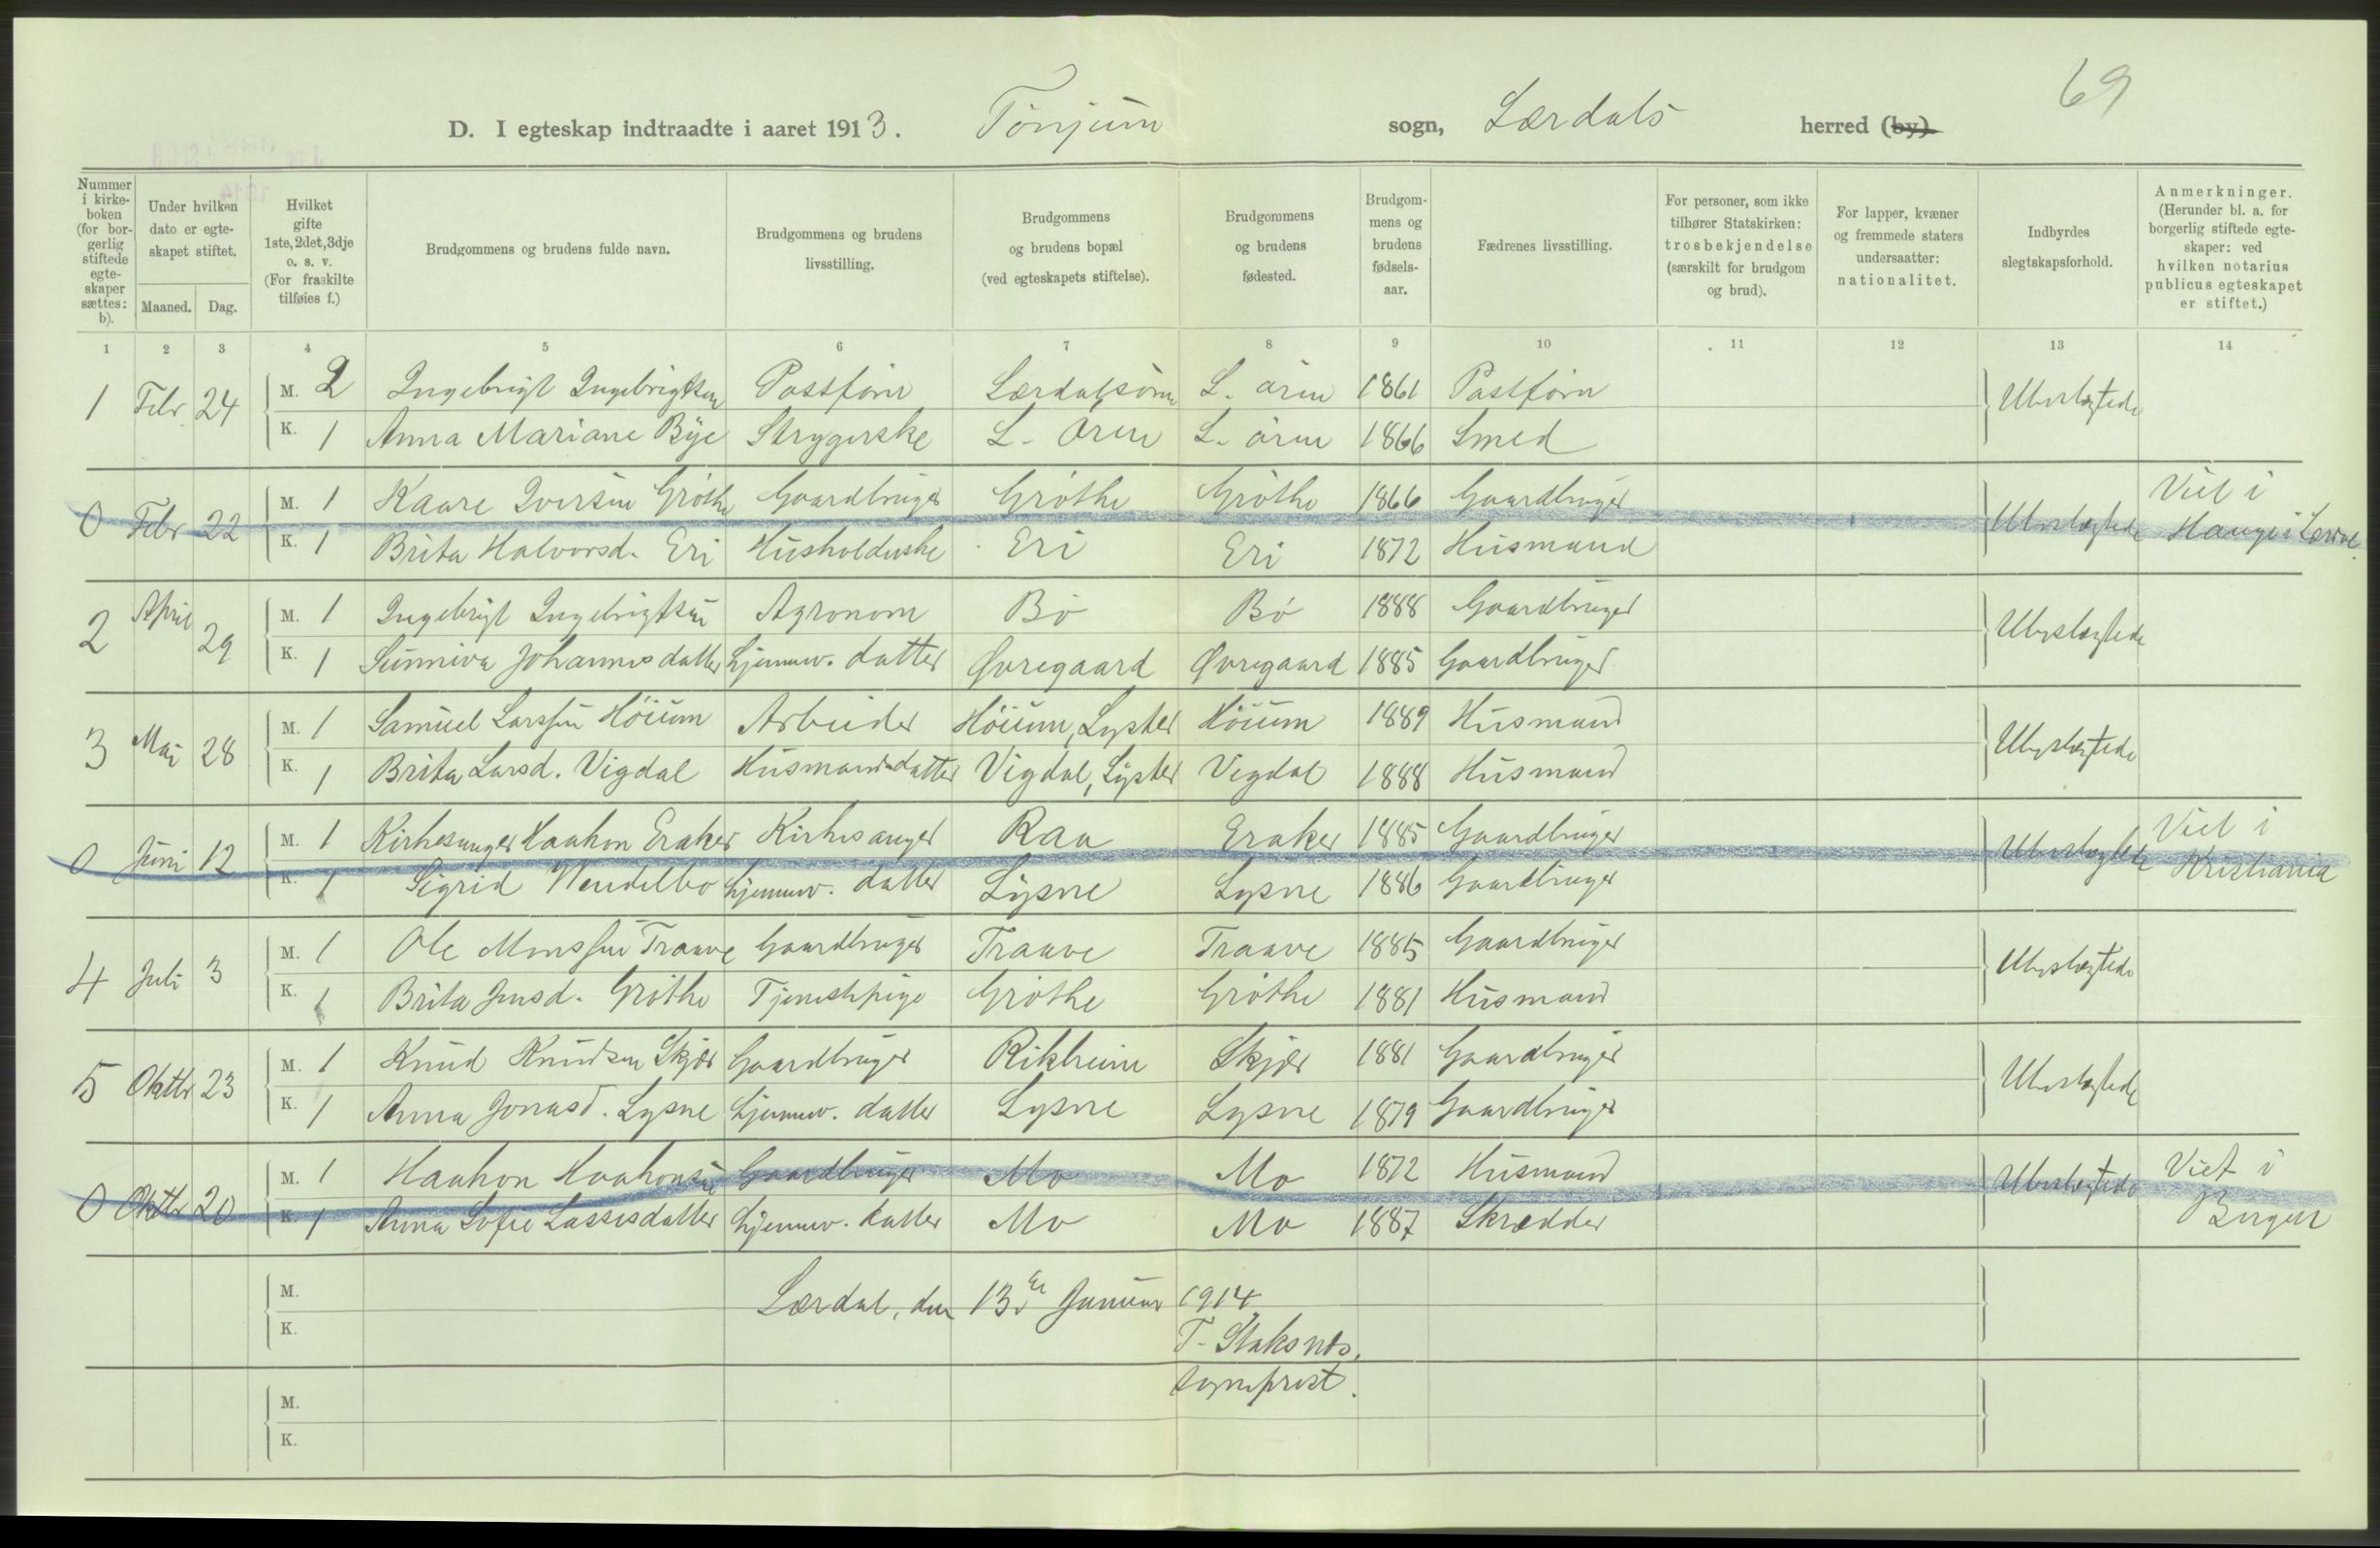 69
D. I egteskap indtraadte i aaret 1913. Tönjum sogn, Lærdals herred (by)
Nummer i kirkeboken (for borgerlig stiftede egteskaper sættes: b).
Under hvilken dato er egteskapet stiftet.
Maaned. Dag.
Hvilket gifte 1ste, 2det, 3dje o. s. v. (For fraskilte tilføies f.)
Brudgommens og brudens fulde navn.
Brudgommens og brudens livsstilling.
Brudgommens og brudens bopæl (ved egteskapets stiftelse).
Brudgommens og brudens fødested.
Brudgommens og brudens fødselsaar.
Fædrenes livsstilling.
For personer, som ikke tilhører Statskirken: trosbekjendelse (særskilt for brudgom og brud).
For lapper, kvæner og fremmede staters undersaatter: nationalitet.
Indbyrdes slegtskapsforhold.
Anmerkninger. (Herunder bl. a. for borgerlig stiftede egteskaper: ved hvilken notarius publicus egteskapet er stiftet.)
1 2 3 4 5 6 7 8 9 10 11 12 13 14
1 Febr 24 M. 2 Ingebrigt Ingebrigtsen Postförer Lærdalsören L. ören 1861 Postförer Ubeslegtede
K. 1 Anna Mariane Bye Strygerske L. Ören L. ören 1866 Smed
0 Febr 22 M. 1 Kaare Iversen Gröthe Gaardbruger Gröthe Gröthe 1866 Gaardbruger Ubeslegtede Viet i
K. 1 Brita Halvorsd. Eri Husholderske Eri Eri 1872 Husmand Hauge i Lærdal.
2 April 29 M. 1 Ingebrigt Ingebrigtsen Agronom Bö Bö 1888 Gaardbruger Ubeslegtede
K. 1 Sunniva Johannesdatter hjemmev. datter Øvregaard Øvregaard 1885 Gaardbruger
3 Mai 28 M. 1 Samuel Larssen Höium Arbeider Höium, Lyster Höium 1889 Husmand Ubeslegtede
K. 1 Brita Larsd. Vigdal Husmandsdatter Vigdal, Lyster Vigdal 1888 Husmand
0 Juni 12 M. 1 Kirkesanger Haakon Eraker Kirkesanger Raa Eraker 1885 Gaardbruger Ubeslegtede Viet i
K. 1 Sigrid Wendelbo hjemmev. datter Lysne Lysne 1886 Gaardbruger Kristiania
4 Juli 3 M. 1 Ole Monssen Traave Gaardbruger Traave Traave 1885 Gaardbruger Ubeslegtede
K. 1 Brita Jensd. Gröthe Tjenestepige Gröthe Gröthe 1881 Husmand
5 Oktbr 23 M. 1 Knud Knudsen Skjær Gaardbruger Rikheim Skjær 1881 Gaardbruger Ubeslegtede
K. 1 Anna Jonasd. Lysne hjemmev. datter Lysne Lysne 1879 Gaardbruger
0 Oktbr 20 M. 1 Haakon Haakonsen Gaardbruger Mo Mo 1872 Husmand Ubeslegtede Viet i
K. 1 Anna Sofie Lassesdatter hjemmev. datter Mo Mo 1887 Skrædder Bergen
M. Lærdal, den 13de Januar 1914
K. T. Staksnes,
sogneprest.
M.
K.